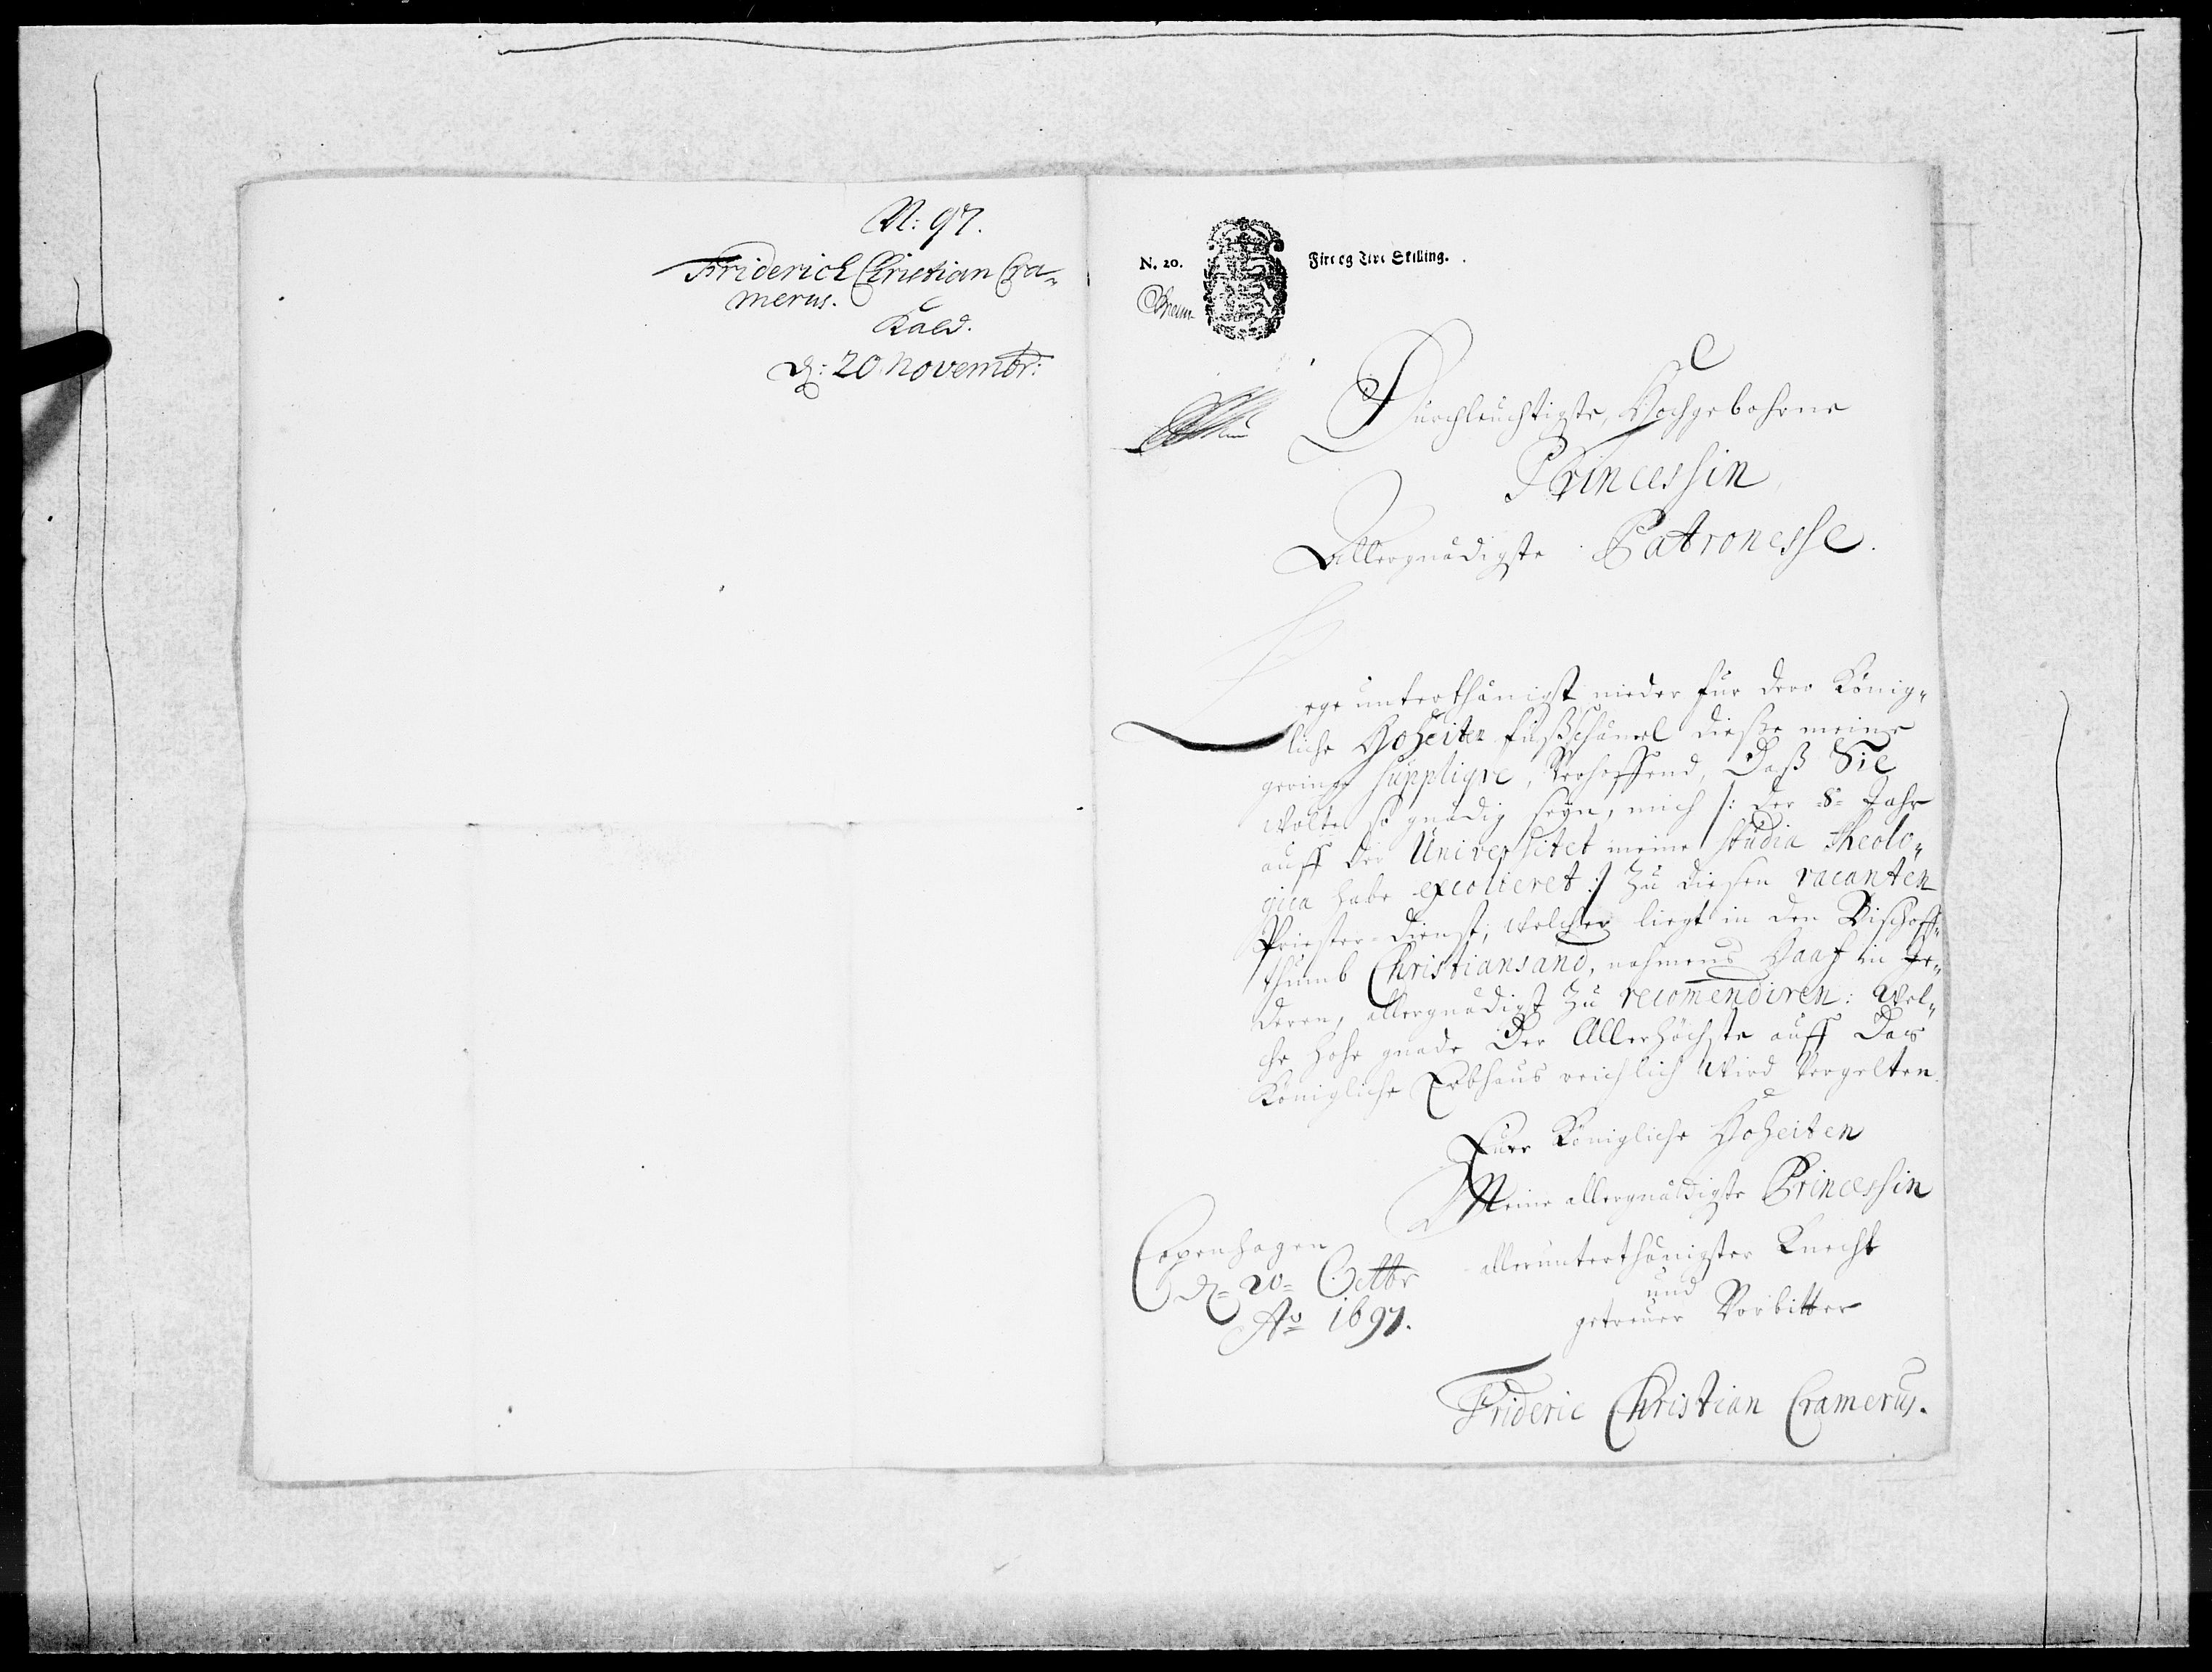 N: 97.
Friderich Christian Cra-
merus.
Kald.
d: 20 Novembr:
N. 20.
Fire og Tive Skilling.
Durchleuchtigste, Hochgebohrne
Princessin
Allergnädigste Patronesse.
Lege unterthänigst nieder für dero König-
liche Hoheiten fußschämel dieße meine
geringe supplique, Verhoffend, Daß Sie
wolte so gnädig seyn, mich /: der 8= Jahr
auff der Universitet meine studia theolo-
gica habe excolieret :/ zu diesen vacanten
Priester-dienst, welcher liegt in den Bischoff-
thumb Christiansand, nahmens Haaf in Je-
deren, allergnädigst zu recomendiren: Wel-
che hohe gnade Der Allerhöchste auff Das
Königliche Erbhaus reichlich wird vergelten.
Euer Königliche Hoheiten
Meine allergnädigste Princessin
Copenhagen
d= 20= Octbr
Ao 1697.
allerunterthänigster Knecht
und
getreuer Vorbitter
Frideric Christian Cramerus.